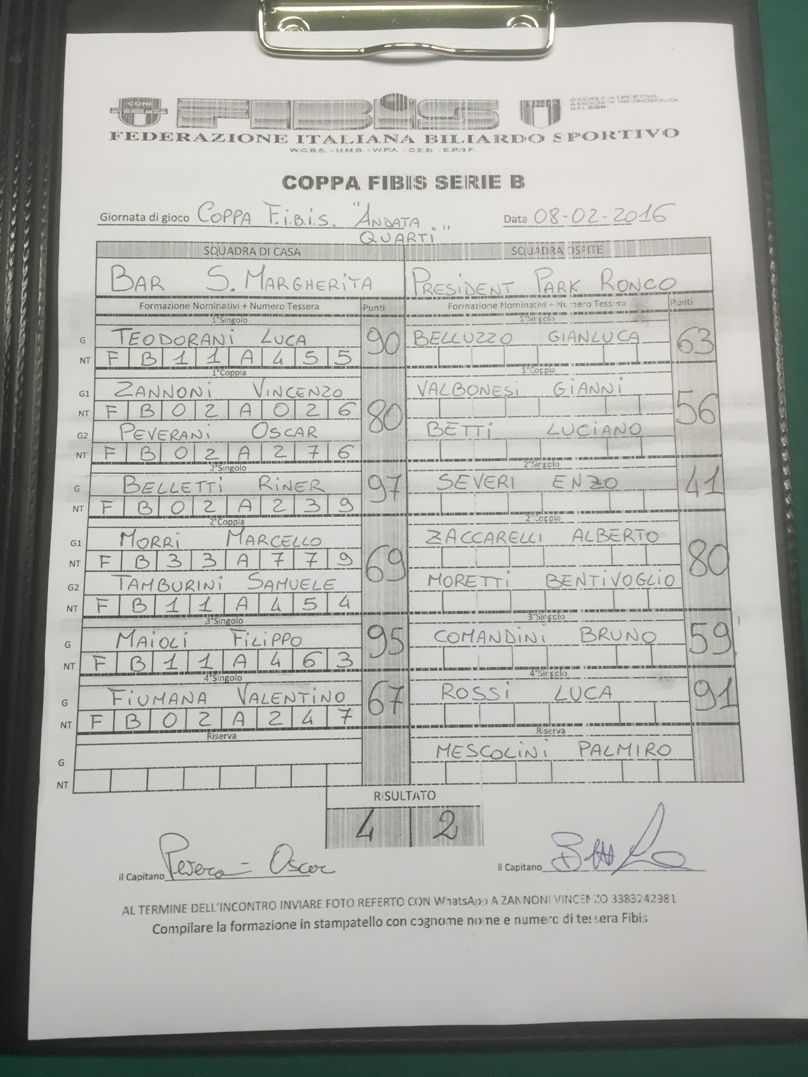 CONI
FIBiS
FEDERAZIONE ITALIANA BILIARDO SPORTIVO
COPPA FIBIS SERIE B
Giornata di gioco COPPA F.i.B.i.S. "ANDATA." Data 08-02-2016
QUARTI
SQUADRA DI CASA SQUADRA OSPITE
BAR S. MARGHERITA PRESIDENT PARK RONCO
Formazione Nominativi + Numero Tessera Punti Formazione Nominativi + Numero Tessera Punti
1°Singolo 1°Singolo
G TEODORANI LUCA 90 BELLUZZO GIANLUCA 63
NT F B 1 1 A 4 5 5
1°Coppia 1°Coppia
G1 ZANNONI VINCENZO 80 VALBONESI GIANNI 56
NT F B 0 2 A 0 2 6
G2 PEVERANI OSCAR BETTI LUCIANO
NT F B 0 2 A 2 7 6
2°Singolo 2°Singolo
G BELLETTI RINER 97 SEVERI ENZO 41
NT F B 0 2 A 2 3 9
2°Coppia 2°Coppia
G1 MORRI MARCELLO 69 ZACCARELLI ALBERTO 80
NT F B 3 3 A 7 7 9
G2 TAMBURINI SAMUELE MORETTI BENTIVOGLIO
NT F B 1 1 A 4 5 4
3°Singolo 3°Singolo
G MAIOLI FILIPPO 95 COMANDINI BRUNO 59
NT F B 1 1 A 4 6 3
4°Singolo 4°Singolo
G FIUMANA VALENTINO 67 ROSSI LUCA 91
NT F B 0 2 A 2 4 7
Riserva Riserva
G MESCOLINI PALMIRO
NT
RISULTATO
4 2
il Capitano Oscar il Capitano
AL TERMINE DELL'INCONTRO INVIARE FOTO REFERTO CON WhatsApp A ZANNONI VINCENZO 3383242981
Compilare la formazione in stampatello con cognome nome e numero di tessera Fibis